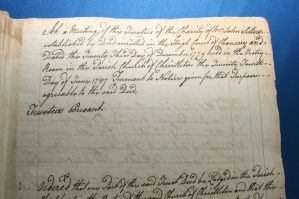 At a Meeting of the Trustees of the Charity of Mr. John Sellers
established by Deed enrolled in the High Court of Chancery and
Dated the Twenty Third Day of December 1779 held in the Vestry
Room in the Parish Church of Christleton the Twenty Fourth
Day of June 1787 Pursuant to Notice given for that purpose
agreeably to the said Deed,
Trustees Present.
Ordered that one Part of the said Trust Deed be Lodged in the Parish
Church of Christleton and that the